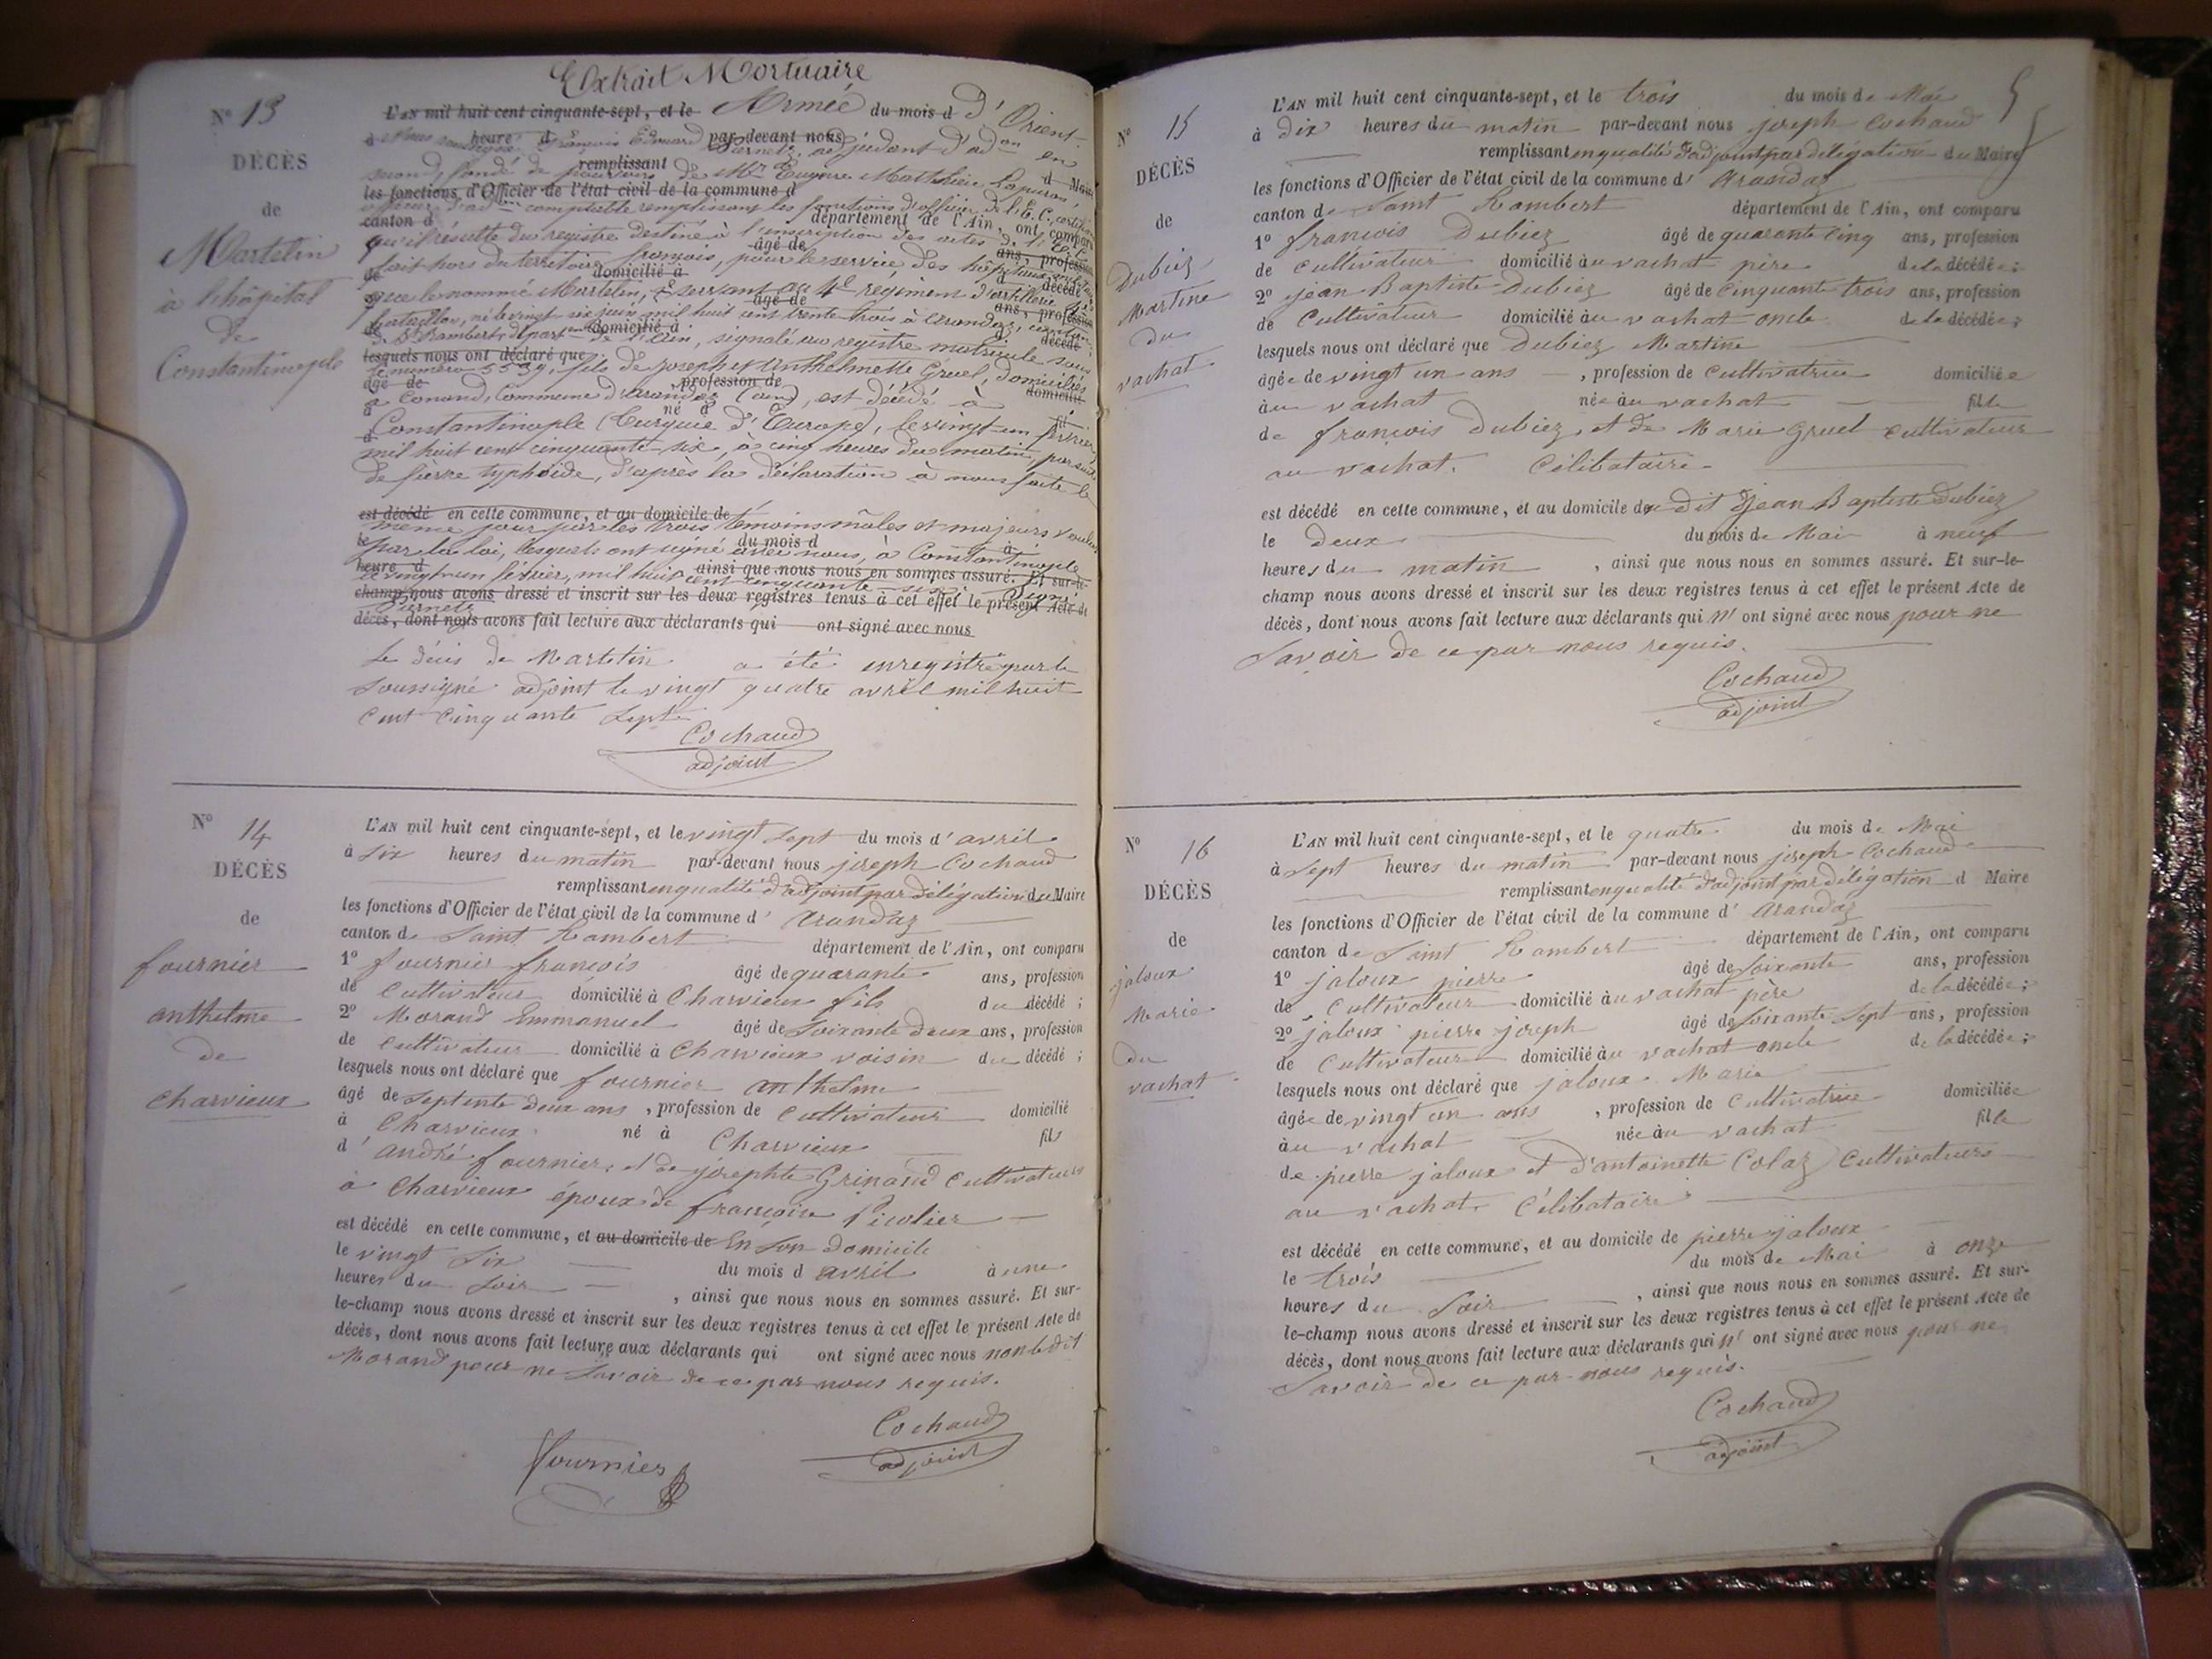 Extrait Mortuaire
N° 13
DÉCÈS
de
Martelin
à l'hôpital
de
Constantinople
L'AN mil huit cent cinquante-sept, et le Armée du mois d d'Orient
heure d par-devant nous
François Edouard adjudant d'adon en
remplissant
second, fondé de pouvoirs de Mr Eugène Matthieu d Maire
les fonctions d'Officier de l'état civil de la commune d
comptable remplissant les fonctions d'officier de l'E. C.
canton d département de l'Ain, ont comparu
qu'il résulte du registre destiné à l'inscription des actes de l'E. C.
âgé de ans, profession
fait hors du territoire français, pour le service des hôpitaux
de domicilié à décédé
que le nommé Martelin, servant au 4e régiment d'artillerie
âgé de ans, profession
bataillon, né le vingt six juin mil huit cent trente trois à Arandaz, canton
de domicilié à décédé
de St Rambert, départ de l'ain, signalé au registre matricule sous
lesquels nous ont déclaré que
le numéro 5539, fils de joseph et Anthelmette Gruel, domiciliés
âgé de profession de domicilié
à Conand, Commune d'arandaz (ain), est décédé à
à né à fil
Constantinople (Turquie d'Europe), le vingt un février
mil huit cent cinquante-six, à cinq heures du matin, par suite
de fièvre typhoïde, d'après la déclaration à nous faite le
est décédé en cette commune, et au domicile de
même jour par les trois témoins mâles et majeurs voulus
le du mois d à
par la loi, lesquels ont signé avec nous, à Constantinople
heure d ainsi que nous nous en sommes assuré. Et sur-le-
le vingt un février, mil huit cent cinquante-six. Signé
champ nous avons dressé et inscrit sur les deux registres tenus à cet effet le présent Acte de
décès, dont nous avons fait lecture aux déclarants qui ont signé avec nous
Le décès de Martelin a été enregistré par le
soussigné adjoint le vingt quatre avril mil huit
cent cinquante sept
Cochaud
adjoint
N° 14
DÉCÈS
de
fournier
anthelme
de
charvieux
L'AN mil huit cent cinquante-sept, et le vingt sept du mois d'avril
à six heures du matin par-devant nous joseph Cochaud
remplissant en qualité d'adjoint par délégation du Maire
les fonctions d'Officier de l'état civil de la commune d'arandaz
canton de Saint Rambert département de l'Ain, ont comparu
1° fournier françois âgé de quarante ans, profession
de Cultivateur domicilié à Charvieux fils du décédé ;
2° Morand Emmanuel âgé de soixante deux ans, profession
de Cultivateur domicilié à Charvieux voisin du décédé ;
lesquels nous ont déclaré que fournier anthelme
âgé de septente deux ans, profession de Cultivateur domicilié
à Charvieux né à Charvieux fils
d'andré fournier, et de josephte Grinand Cultivateurs
à Charvieux époux de françoise
est décédé en cette commune, et au domicile de En son domicile
le vingt six du mois d avril à une
heures du soir, ainsi que nous nous en sommes assuré. Et sur-
le-champ nous avons dressé et inscrit sur les deux registres tenus à cet effet le présent Acte de
décès, dont nous avons fait lecture aux déclarants qui ont signé avec nous non ledit
Morand pour ne savoir de ce par nous requis.
Cochaud
adjoint
fournier
5
N° 15
DÉCÈS
de
Dubiez
Martine
du
vachat
L'AN mil huit cent cinquante-sept, et le trois du mois de Mai
à dix heures du matin par-devant nous joseph Cochaud
remplissant en qualité d'adjoint par délégation du Maire
les fonctions d'Officier de l'état civil de la commune d'Arandaz
canton de Saint Rambert département de l'Ain, ont comparu
1° françois Dubiez âgé de quarante cinq ans, profession
de Cultivateur domicilié au vachat père de la décédée ;
2° jean Baptiste Dubiez âgé de cinquante trois ans, profession
de Cultivateur domicilié au vachat oncle de la décédée ;
lesquels nous ont déclaré que Dubiez Martine
âgée de vingt un ans, profession de Cultivatrice domiciliée
au vachat née au vachat fille
de françois Dubiez, et de Marie Gruel cultivateur
au vachat. Célibataire
est décédé en cette commune, et au domicile du dit jean Baptiste Dubiez
le deux du mois de Mai à neuf
heures du matin, ainsi que nous nous en sommes assuré. Et sur-le-
champ nous avons dressé et inscrit sur les deux registres tenus à cet effet le présent Acte de
décès, dont nous avons fait lecture aux déclarants qui n'ont signé avec nous pour ne
savoir de ce par nous requis.
Cochaud
adjoint
N° 16
DÉCÈS
de
jaloux
Marie
du
vachat
L'AN mil huit cent cinquante-sept, et le quatre du mois de Mai
à sept heures du matin par-devant nous joseph Cochaud
remplissant en qualité d'adjoint par délégation d Maire
les fonctions d'Officier de l'état civil de la commune d'Arandaz
canton de Saint Rambert département de l'Ain, ont comparu
1° jaloux pierre âgé de soixante ans, profession
de Cultivateur domicilié au vachat père de la décédée ;
2° jaloux pierre joseph âgé de soixante sept ans, profession
de Cultivateur domicilié au vachat oncle de la décédée ;
lesquels nous ont déclaré que jaloux Marie
âgée de vingt un ans, profession de Cultivatrice domiciliée
au vachat née au vachat fille
de pierre jaloux et d'antoinette Colaz Cultivateurs
au vachat. Célibataire
est décédé en cette commune, et au domicile de pierre jaloux
le trois du mois de Mai à onze
heures du soir, ainsi que nous nous en sommes assuré. Et sur-
le-champ nous avons dressé et inscrit sur les deux registres tenus à cet effet le présent Acte de
décès, dont nous avons fait lecture aux déclarants qui n'ont signé avec nous pour ne
savoir de ce par nous requis.
Cochaud
adjoint